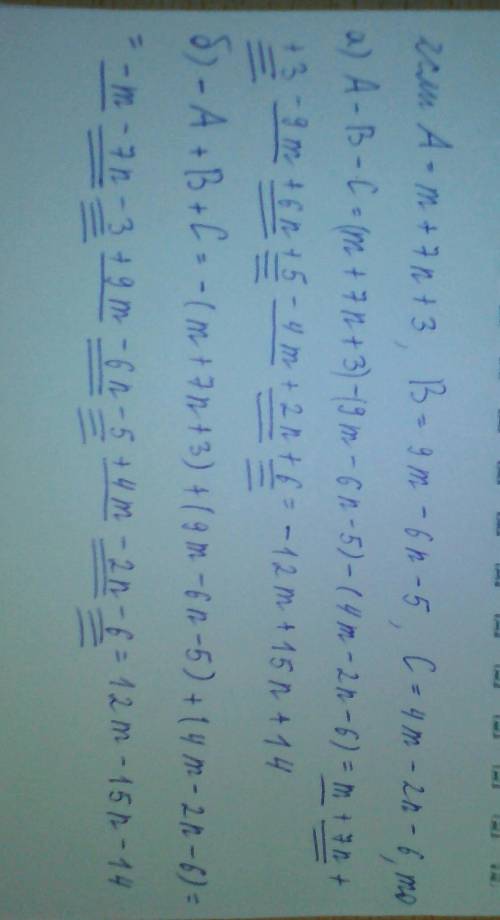 если A = m + 7n + 3, B = 9m - 6n - 5, C = 4m - 2n - 6, то
а) A - B - C = (m + 7n + 3) - (9m - 6n - 5) - (4m - 2n - 6) = m + 7n +
+ 3 - 9m + 6n + 5 - 4m + 2n + 6 = - 12m + 15n + 14
б) - A + B + C = - (m + 7n + 3) + (9m - 6n - 5) + (4m - 2n - 6) =
= - m - 7n - 3 + 9m - 6n - 5 + 4m - 2n - 6 = 12m - 15n - 14